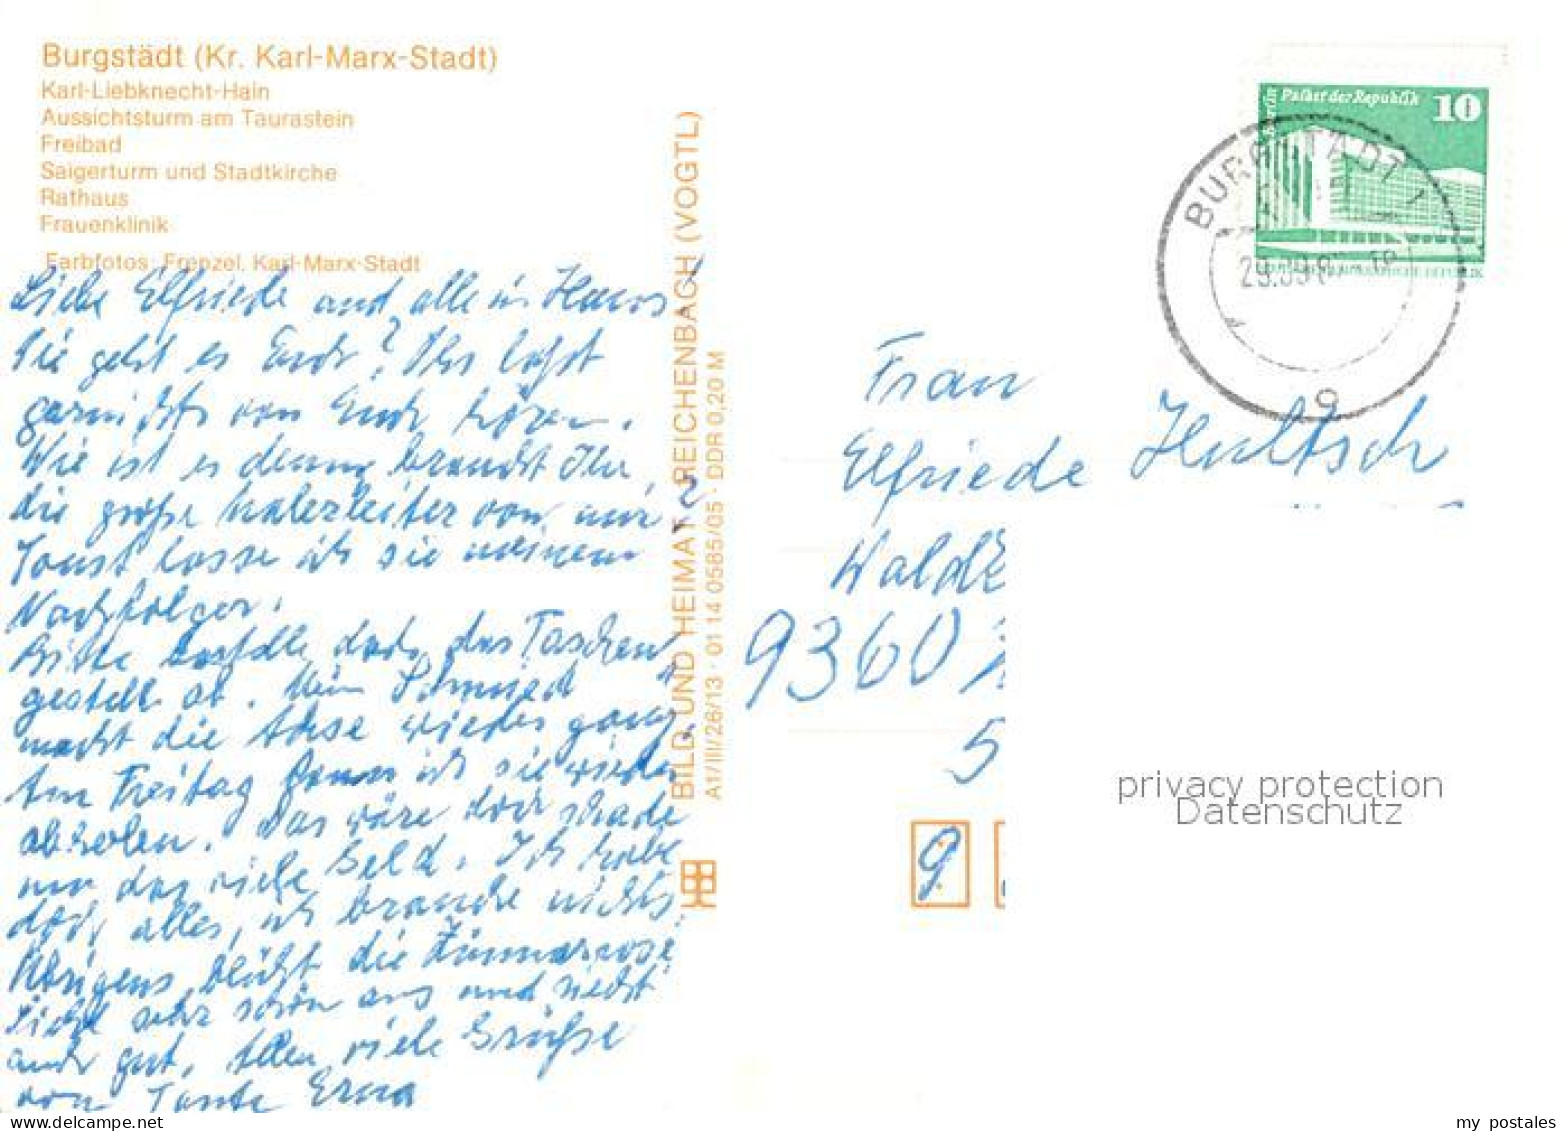 Burgstädt (Kr. Karl-Marx-Stadt)
Karl-Liebknecht-Hain
Aussichtsturm am Taurastein
Freibad
Saigerturm und Stadtkirche
Rathaus
Frauenklinik
Farbfotos: Frenzel, Karl-Marx-Stadt
Liebe Elfriede und alle im Haus
Wie geht es Euch? Ihr laßt
garnichts von Euch hören.
Wie ist es denn, braucht Ihr
die große Malerleiter von mir?
Sonst lasse ich sie meinem
Nachfolger.
Bitte bestelle doch das Taschen
gestell ab. Mein Schmied
macht die Achse wieder ganz.
Am Freitag kann ich sie wieder
abholen. Das wäre doch schade
um das viele Geld. Ich habe
doch alles, ich brauche nichts.
Übrigens blüht die Zimmerrose
sieht sehr schön aus und riecht
auch gut. Allen viele Grüße
von Tante Erna
BILD UND HEIMAT REICHENBACH (VOGTL)
A1/III/26/13 · 01 14 0585/05 · DDR 0,20 M
Berlin Palast der Republik
10
BURGSTÄDT 1
29.09.8
g
Frau
Elfriede Hultsch
Wald
9360
5
9
privacy protection
Datenschutz
my postales